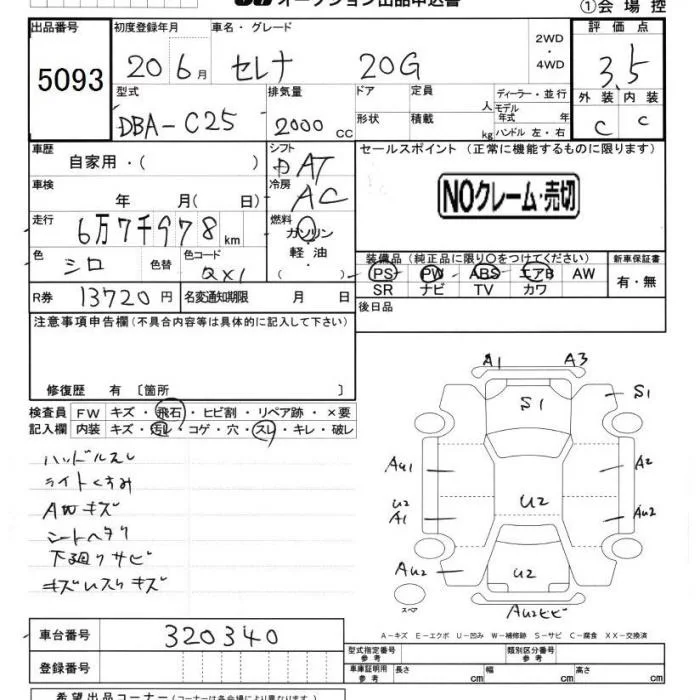 オークション出品申込書
①会場控
出品番号 初度登録年月 車名・グレード 2WD ・ 4WD 評価点
5093 20 6月 セレナ 20G 3.5
型式 排気量 ドア 定員 人 ディーラー・並行 外装 内装
DBA-C25 2000 CC 形状 積載 kg モデル年式 年 ハンドル 左・右 C C
車歴 自家用・( ) シフト AT セールスポイント (正常に機能するものに限ります)
車検 年 月(日) 冷房 AC NOクレーム・売切
走行 6万7千978 km 燃料 ガソリン 軽・油 ( )
色 シロ 色替 色コード QX1 装備品(純正品に限り〇をつけてください) 新車保証書
PS PW ABS エアB AW 有・無
SR ナビ TV カワ
R券 13720円 名変通知期限 月 日 後日品
注意事項申告欄(不具合内容等は具体的に記入して下さい)
修復歴 有 〔箇所 〕
検査員 FW キズ・飛石・ヒビ割・リペア跡・×要
記入欄 内装 キズ・汚レ・コゲ・穴・スレ・キレ・破レ
ハンドルスレ
ライトくすみ
AWキズ
シートヘタリ
下廻りサビ
キズいスリキズ
A1 A3
S1 S1
Au1 A2
U2 A1 U2 Au2
Au2 U2
スペア Au2ヒビ
A-キズ E-エクボ U-凹み W-補修跡 S-サビ C-腐食 XX-交換済
車台番号 320340
型式指定番号 参考 類別区分番号 参考
登録番号 車庫証明用 参考 長さ cm 幅 cm 高さ cm
希望出品コーナー(コーナーは各会場により異なります)